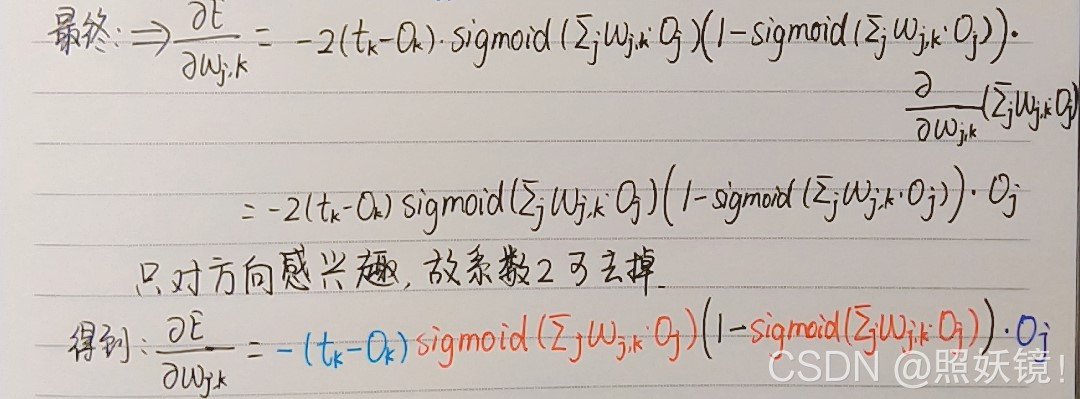 最终:⇒∂E/∂wj,k = -2(tk-Ok)·sigmoid(Σj wj,k·Oj)(1-sigmoid(Σj wj,k·Oj))·
∂/∂wj,k(Σj wj,k·Oj)
= -2(tk-Ok) sigmoid(Σj wj,k·Oj)(1-sigmoid(Σj wj,k·Oj))·Oj
只对方向感兴趣,故系数2可去掉
得到:∂E/∂wj,k = -(tk-Ok) sigmoid(Σj wj,k·Oj)(1-sigmoid(Σj wj,k·Oj))·Oj
CSDN @照妖镜!